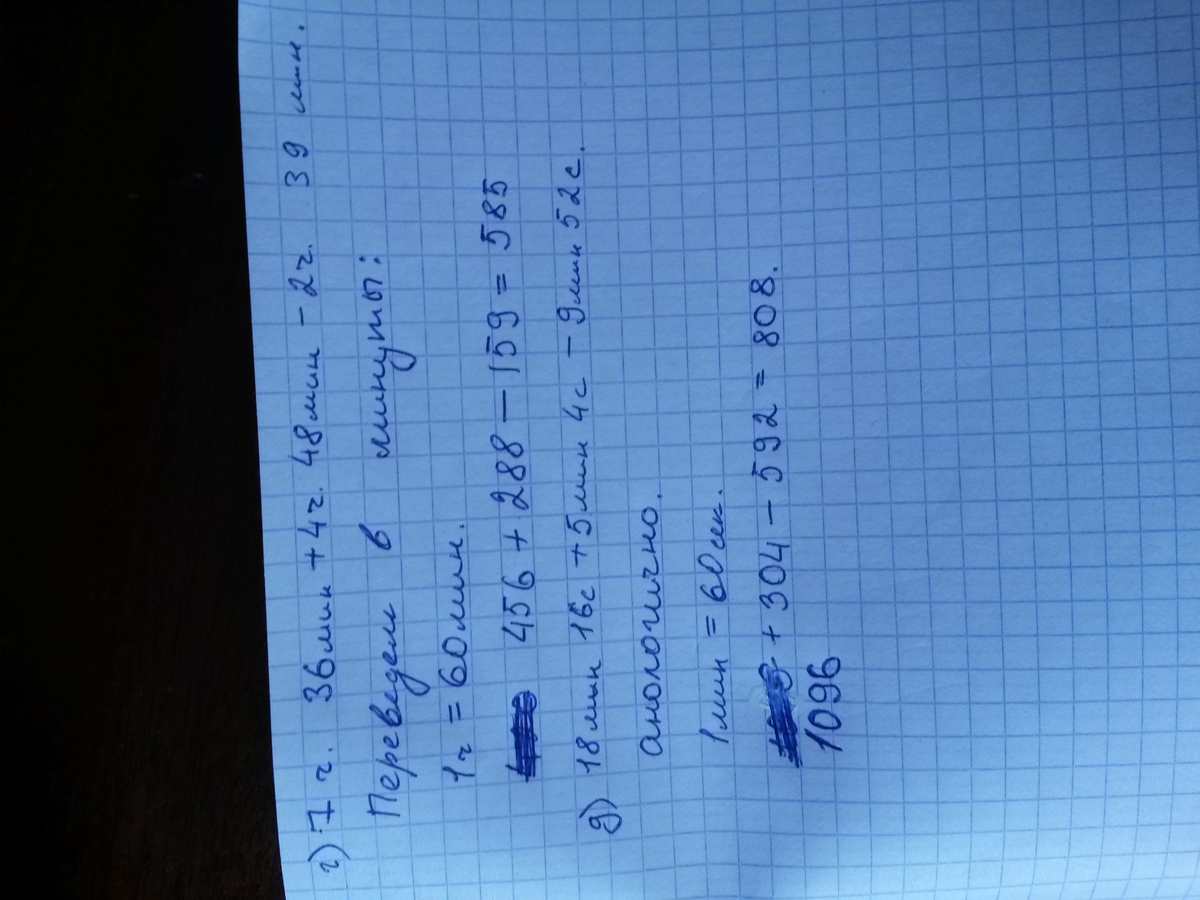 г) 7 ч. 36мин + 4ч. 48мин - 2ч. 39 мин.
Переведем в минуты:
1ч = 60мин.
456 + 288 - 159 = 585
д) 18мин 16с + 5мин 4с - 9мин 52с.
анологично.
1мин = 60сек.
+ 304 - 592 = 808.
1096